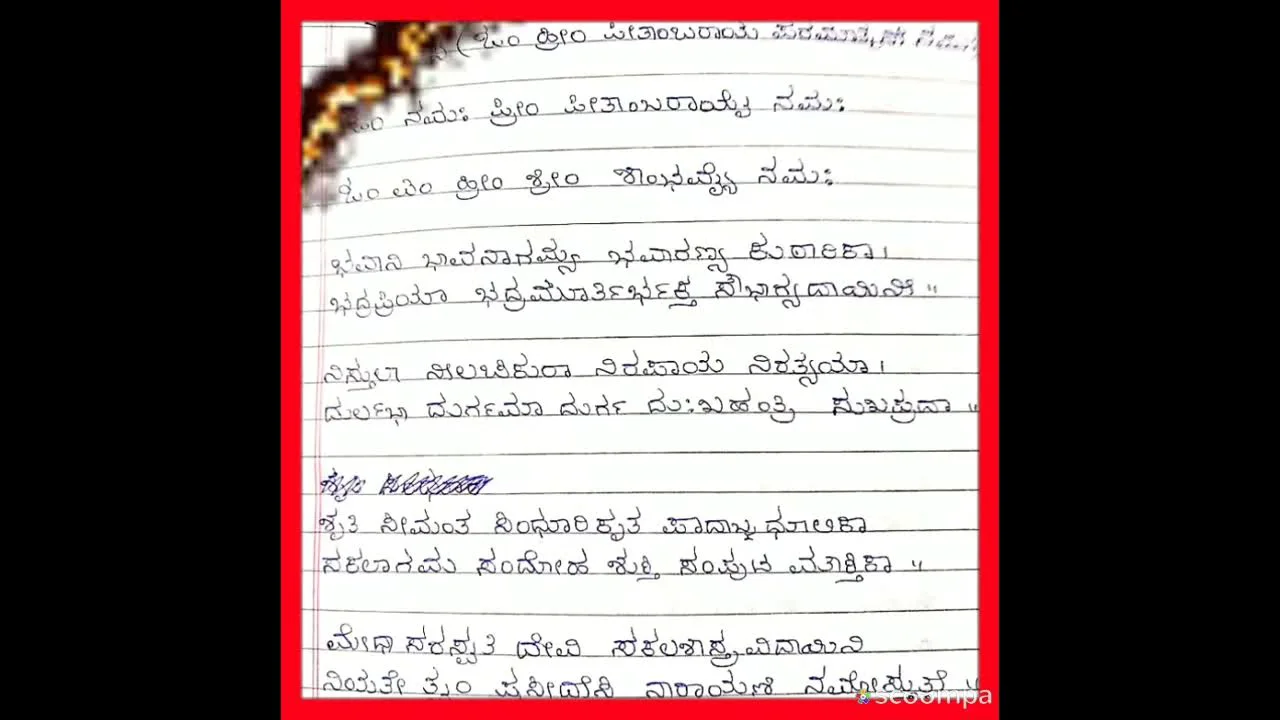 ( ಓಂ ಹ್ರೀಂ ಪೀತಾಂಬರಾಯ ಪರಮಾತ್ಮಣೇ
ಓಂ ನಮಃ ಪ್ರೀಂ ಪೀತಾಂಬರಾಯ್ಯೆ ನಮಃ
ಓಂ ಐಂ ಹ್ರೀಂ ಶ್ರೀಂ ನಮಃ
ಭವಾನಿ ಭಾವನಾಗಮ್ಯ ಭವಾರಣ್ಯ ಕುಠಾರಿಕಾ ।
ಭದ್ರಪ್ರಿಯಾ ಭದ್ರಮೂರ್ತಿರ್ಭಕ್ತ ಸೌಭಾಗ್ಯದಾಯಿನೀ ॥
ನಿಸ್ತುಲಾ ನೀಲಚಿಕುರಾ ನಿರಪಾಯ ನಿರತ್ಯಯಾ ।
ದುರ್ಲಭಾ ದುರ್ಗಮಾ ದುರ್ಗ ದುಃಖಹಂತ್ರಿ ಸುಖಪ್ರದಾ ॥
ಶೃತಿ ಸೀಮಂತ ಸಿಂಧೂರಿಕೃತ ಪಾದಾಬ್ಜ ಧೂಲಿಕಾ
ಸಕಲಾಗಮ ಸಂದೋಹ ಶುಕ್ತಿ ಸಂಪುಟ ಮೌಕ್ತಿಕಾ ॥
ಮೇಧಾ ಸರಸ್ವತಿ ದೇವಿ ಸಕಲಶಾಸ್ತ್ರವಿದಾಯಿನಿ
ನಿಯತೇ ತ್ವಂ ಪ್ರಸೀದೇಸಿ ನಾರಾಯಣಿ ನಮೋಸ್ತುತೇ ॥
scoompa